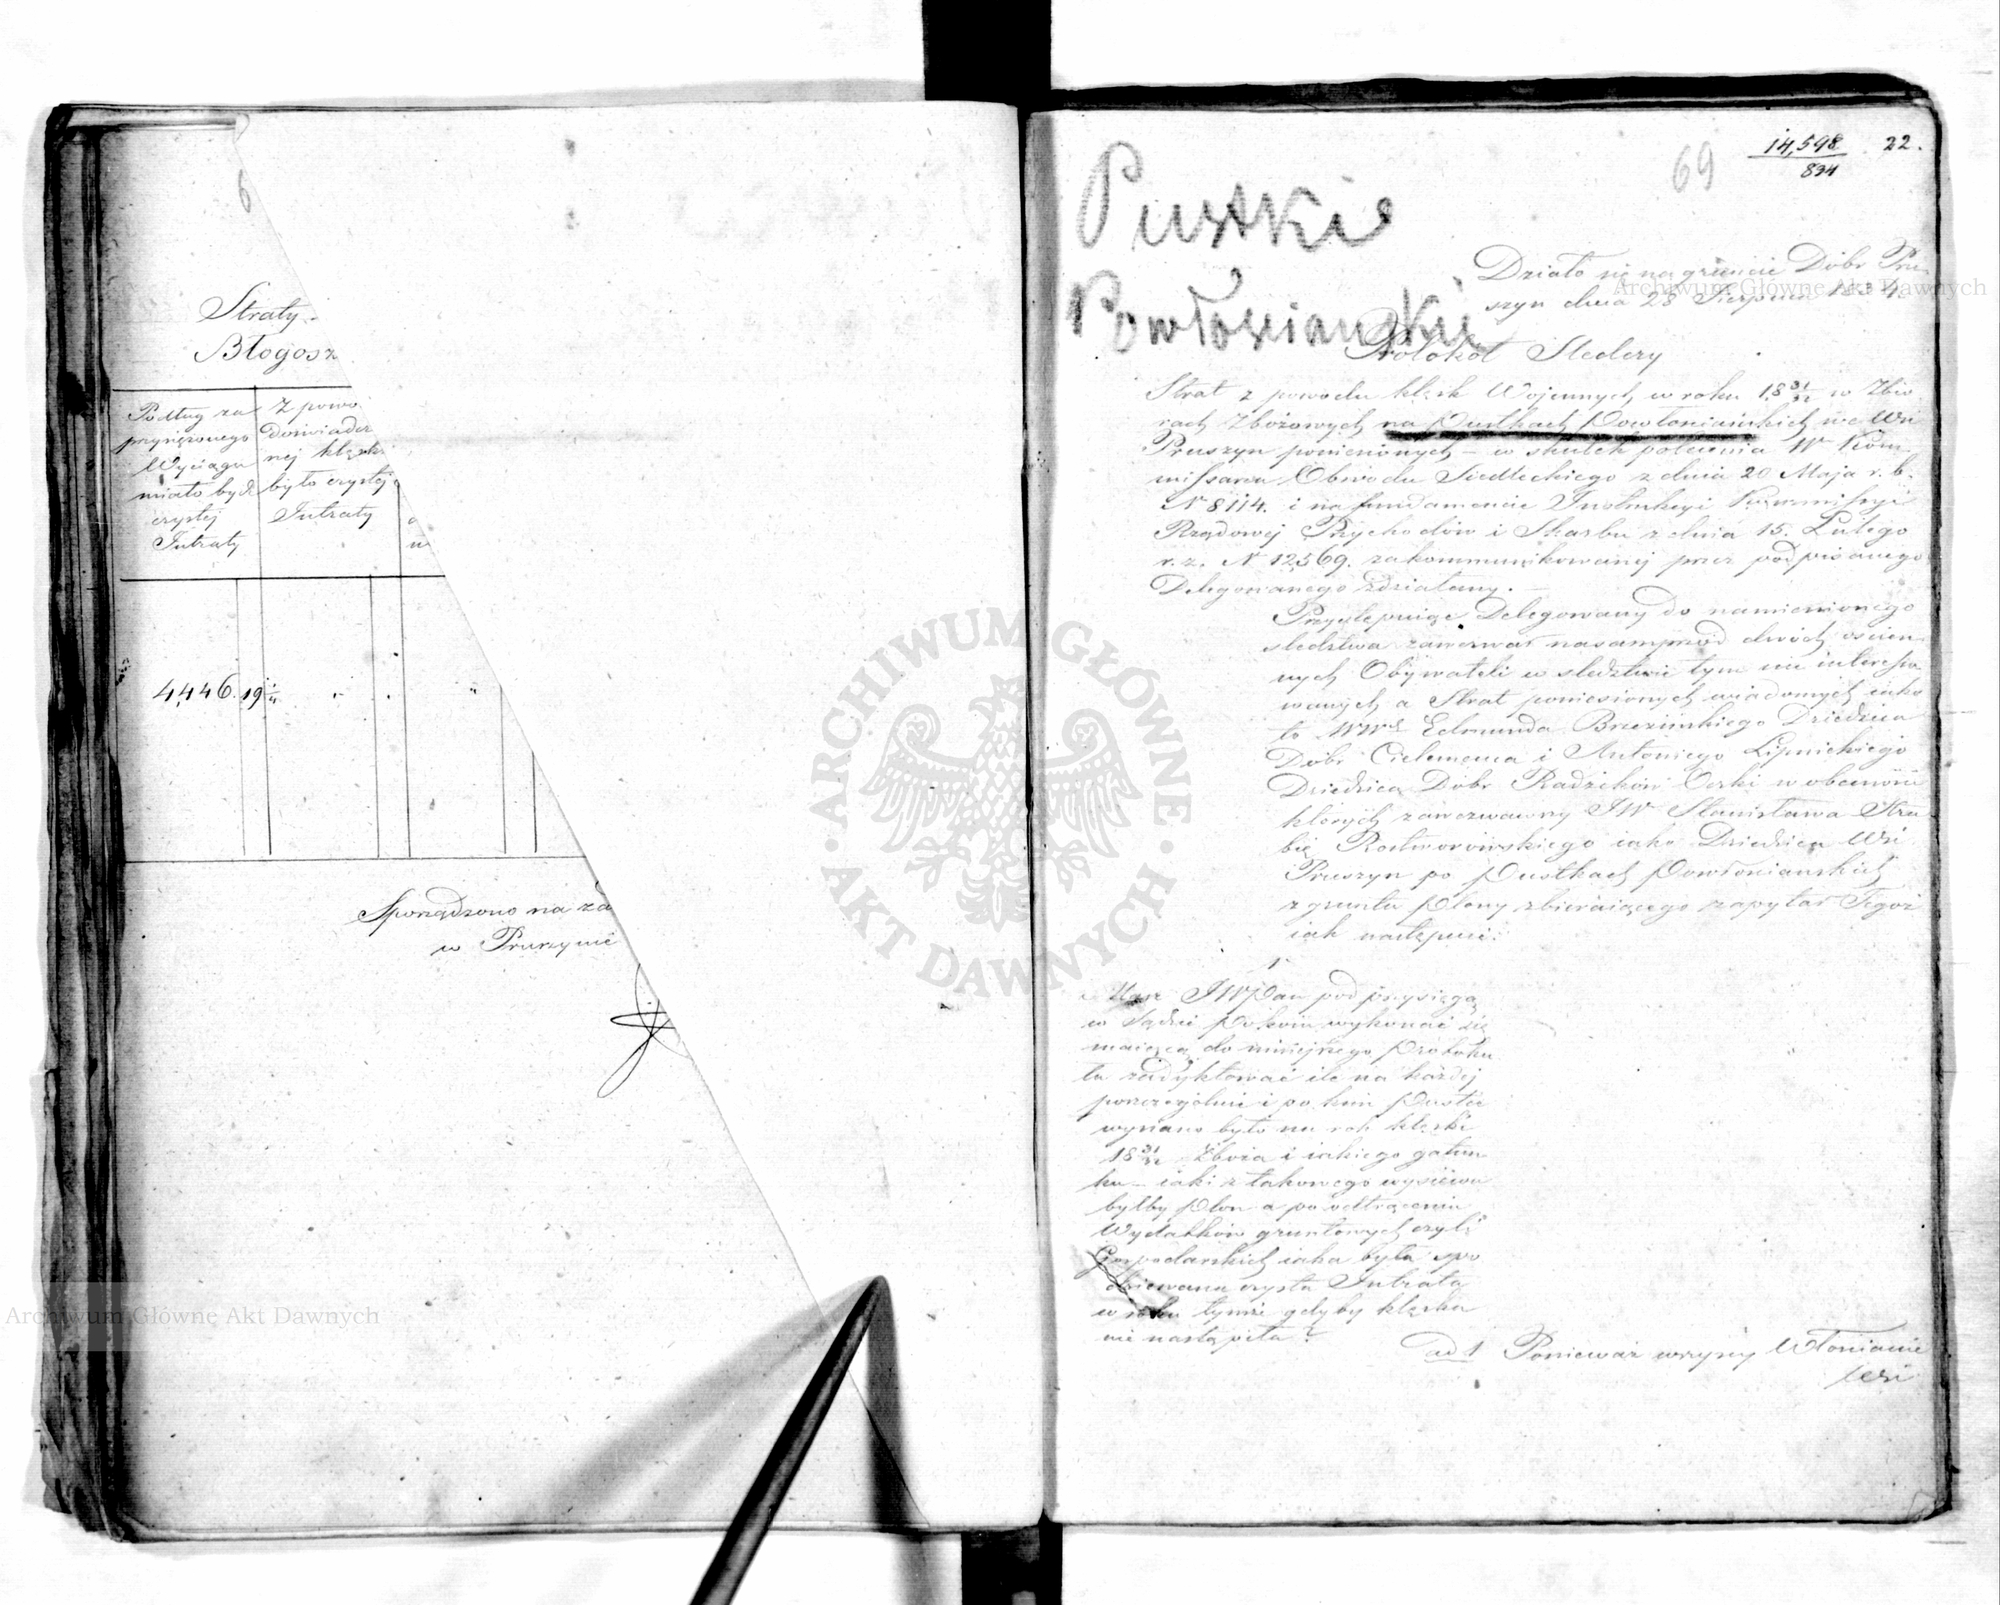 Straty
Błogosz
Podług za
przysiężonego
Wyciągu
miało być
czystej
Intraty
Z powo
doświadcz
nej klęski
było czystej
Intraty
4,446. 19
Sporządzono na
w Pruszynie
69
14,598
894
22.
Pustki
Powłosiańskie
Działo się na gruncie Dóbr Pru
szyn dnia 28 Sierpnia 1834.
Protokół Śledczy
Strat z powodu klęsk Wojennych w roku 18 31/32 w Zbio
rach Zbożowych na Pustkach Powłoniańskich we Wsi
Pruszyn poniesionych – w skutek polecenia W Kom
missarza Obwodu Siedleckiego z dnia 20 Maja r. b.
N 8114. i na fundamencie Instrukcyi Kommissyi
Rządowej Przychodów i Skarbu z dnia 15. Lutego
r. z. N 12,569. zakommunikowanej przez podpisanego
Delegowanego zdziałany.
Przystępuiąc Delegowany do namienionego
śledztwa zawezwał nasamprzód dwóch ościen
nych Obywateli w śledztwie tym nie interesso
wanych a Strat poniesionych wiadomych iako
to WW Edmunda Brzezińskiego Dziedzica
Dóbr Cielemęca i Antoniego Lipnickiego
Dziedzica Dóbr Radzików Oczki w obecności
których zawezwawszy JW Stanisława Hra
bię Rostworowskiego iako Dziedzica Wsi
Pruszyn po Pustkach Powłoniańskich
z gruntu Plony zbieraiącego zapytał Tegoż
iak następuie:
1
JWPan pod przysięgą
w Sądzie Pokoiu wykonać się
maiącą do niniejszego Protokó
łu zadyktować ile na każdej
poszczególnie i po kim Pustce
wysiano było na rok klęski
18 31/32 Zboża i iakiego gatun
ku – iaki z takowego wysiewu
byłby Plon a po odtrąceniu
Wydatków gruntowych czyli
Gospodarskich iaka była spo
dziewana czysta Intrata
w roku tymże gdyby klęska
nie nastąpiła?
ad 1 Ponieważ wszyscy Włonianie
Wsi